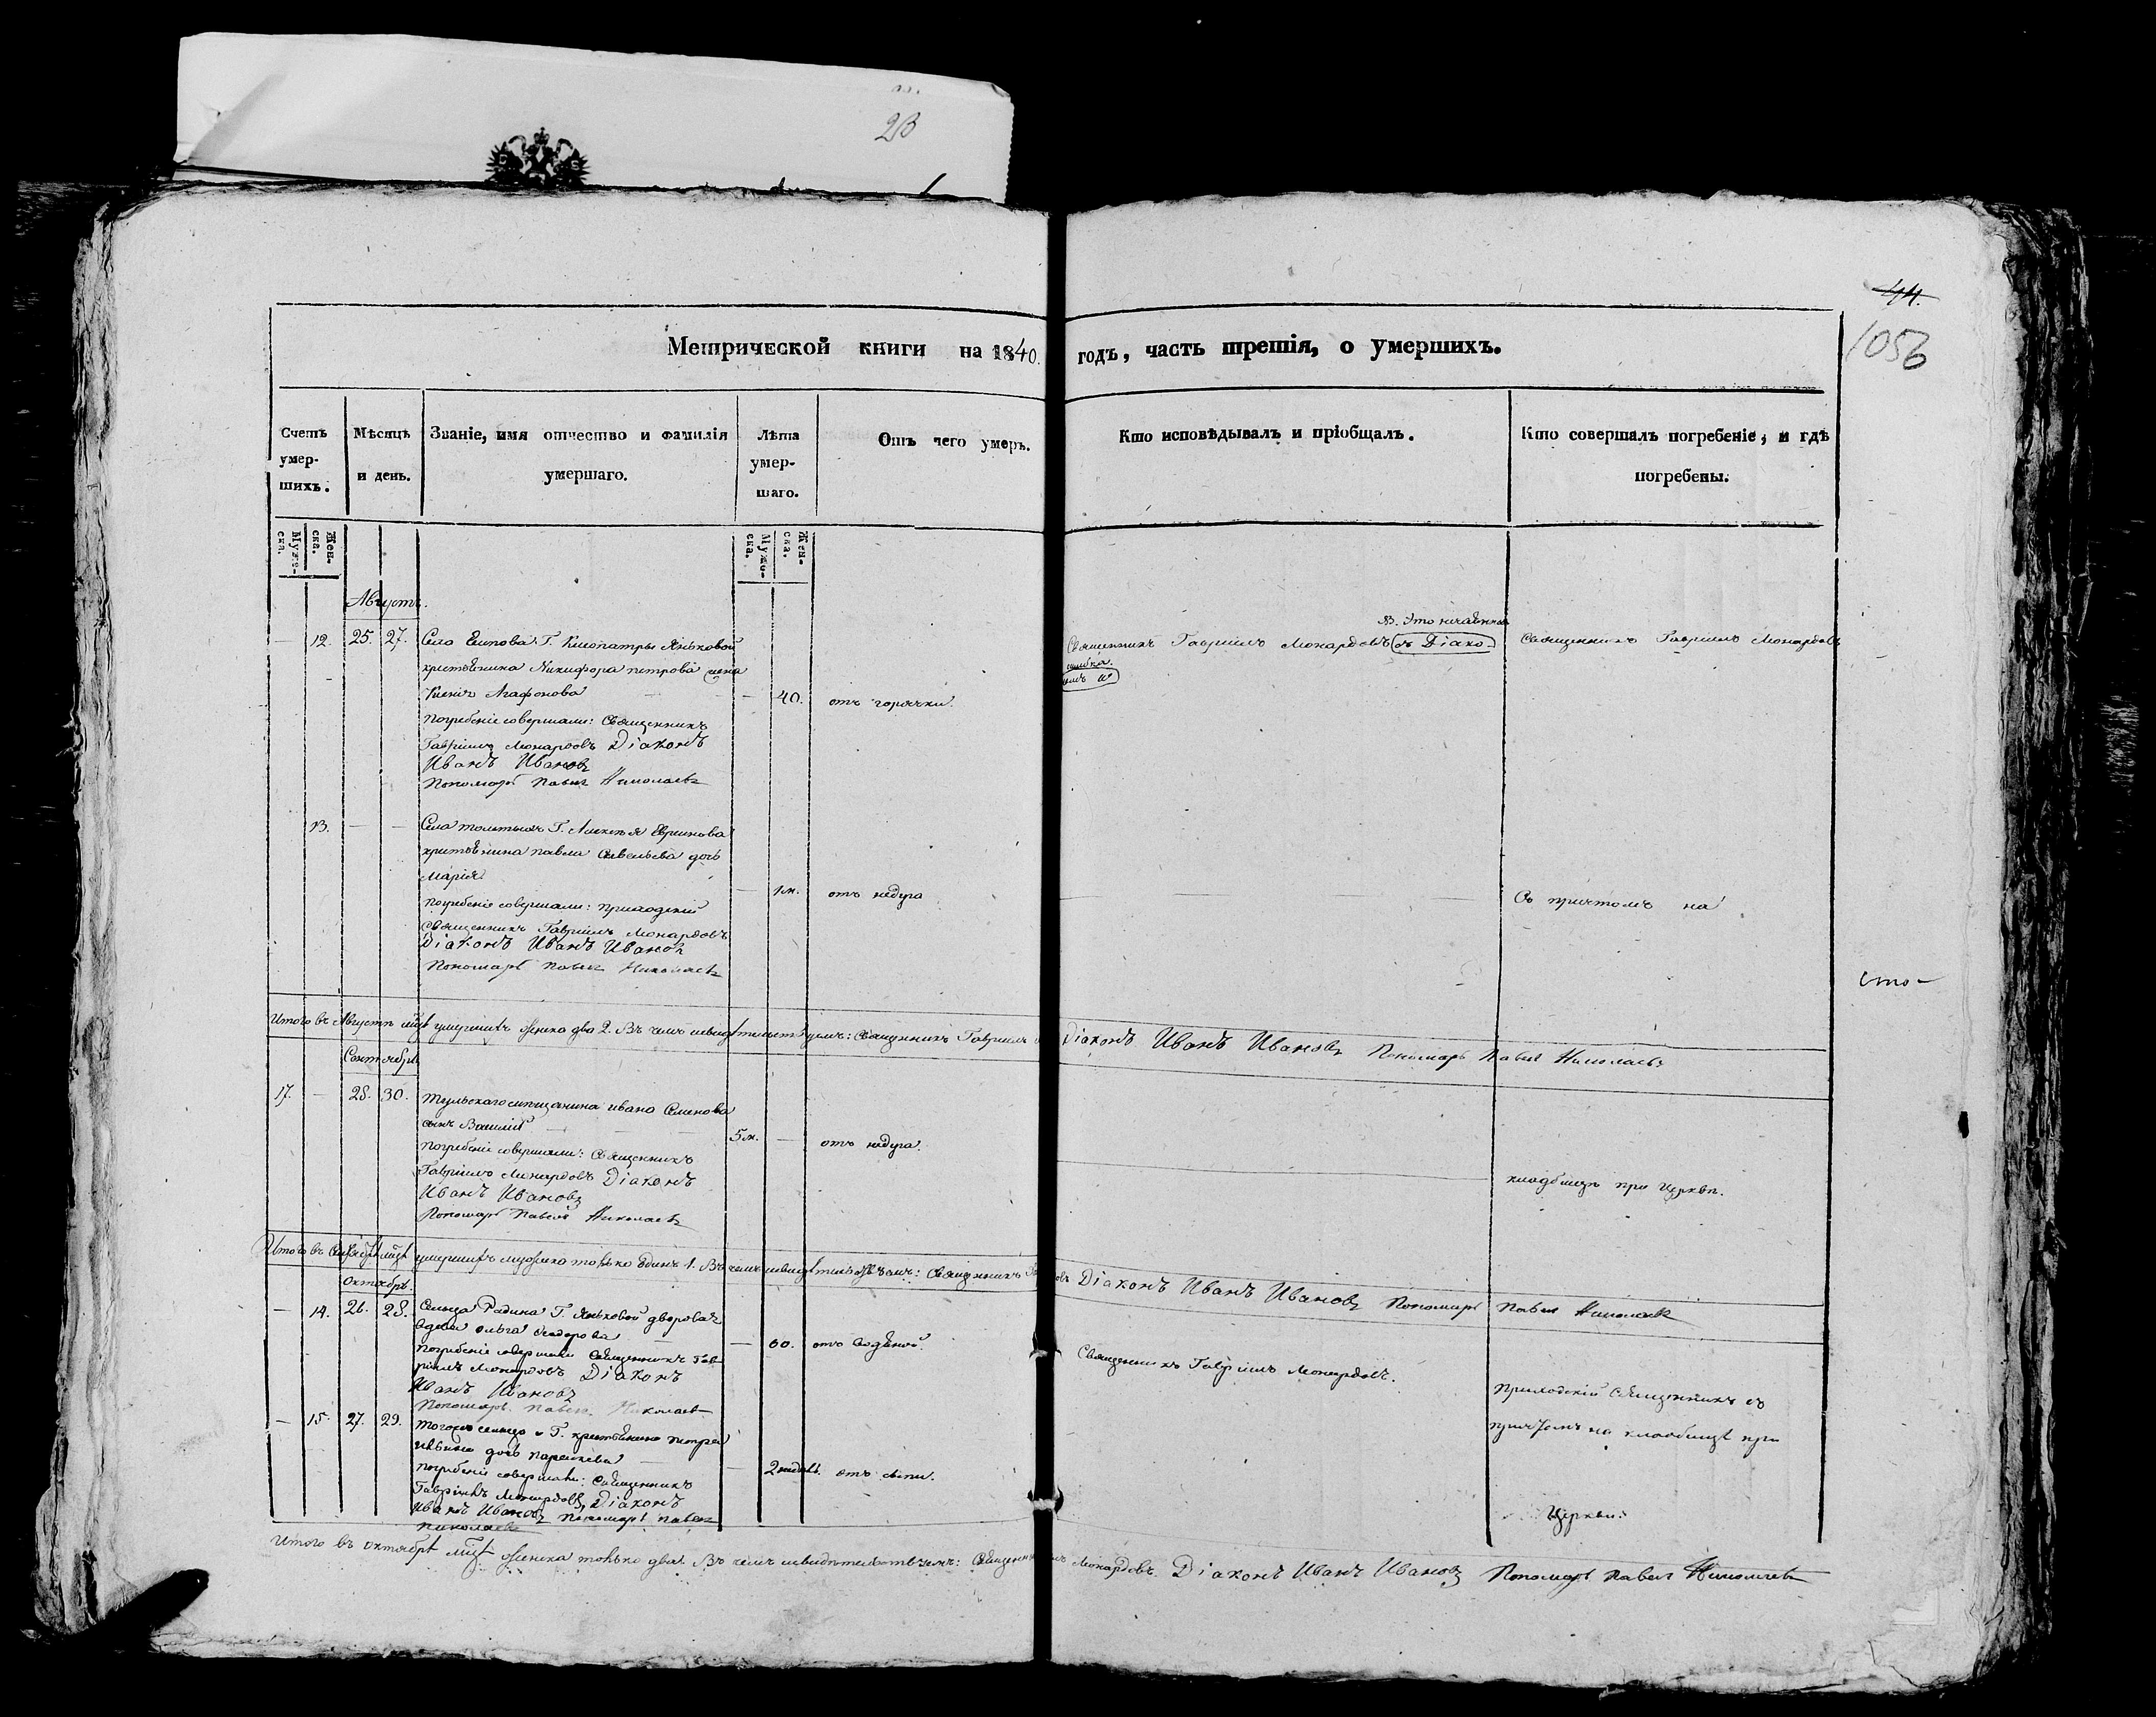 23
44.
1056
Метрической книги на 1840. годъ, часть третія, о умершихъ.
Счетъ умер- шихъ.
Мѣсяцъ и день.
Званіе, имя отчество и фамилія умершаго.
Лѣта умер- шаго.
Отъ чего умеръ.
Кто исповѣдывалъ и пріобщалъ.
Кто совершалъ погребеніе, и гдѣ погребены.
Мужес- ска.
Жен- ска.
Мужес- ска.
Жен- ска.
Августъ.
12. 25. 27. Села Г. Клеопатры Яньковой
крестьянина Никифора петрова жена
Агафонова — 40. отъ горячки.
Погребеніе совершали: Священникъ
Гавріилъ Монардовъ Діаконъ
Иванъ Ивановъ
Пономарь Павелъ Николаевъ
Священникъ Гавріилъ Монардовъ съ Діако-
NB. Это нечаянная
ошибка.
номъ и
Священникъ Гавріилъ Монардовъ
13. — — Села Г. Алексѣя Евреинова
крестьянина павла Савельева дочь
Марія — 1 м. отъ недуга
Погребеніе совершали: приходскій
Священникъ Гавріилъ Монардовъ
Діаконъ Иванъ Ивановъ
Пономарь Павелъ Николаевъ
Съ причтомъ на
сто-
Итого въ Августѣ мцѣ умершихъ женска два 2. Въ чемъ свидѣтельствуемъ: Священникъ Гавріилъ Діаконъ Иванъ Ивановъ Пономарь Павелъ Николаевъ
Сентябрь
17. — 28. 30. Тульскаго мещанина ивана Семенова
сынъ Василій — 5 м. — отъ недуга.
Погребеніе совершали: Священникъ
Гавріилъ Монардовъ Діаконъ
Иванъ Ивановъ
Пономарь Павелъ Николаевъ
кладбищѣ при Церкви.
Итого въ Сентябрѣ мцѣ умершихъ мужеска только одинъ 1. Въ чемъ свидѣтельствуемъ: Священникъ Діаконъ Иванъ Ивановъ Пономарь Павелъ Николаевъ
Октябрь.
— 14. 26. 28. Сельца Радина Г. Яньковой дворовая
вдова ольга Феодорова — 60. отъ водяной.
Погребеніе совершали Священникъ Гав-
ріилъ Монардовъ Діаконъ
Иванъ Ивановъ
Пономарь Павелъ Николаевъ
Священникъ Гавріилъ Монардовъ.
Приходскій Священникъ съ
причтомъ на кладбищѣ при
Церкви.
— 15. 27. 29. Тогожъ сельца и Г. крестьянина петра
дочь параскева — 2 недѣль. отъ оспы.
Погребеніе совершали: Священникъ
Гавріилъ Монардовъ, Діаконъ
Иванъ Ивановъ Пономарь Павелъ
Николаевъ
Итого въ Октябрѣ мцѣ женска только два. Въ чемъ свидѣтельствуемъ: Священникъ Монардовъ. Діаконъ Иванъ Ивановъ Пономарь Павелъ Николаевъ